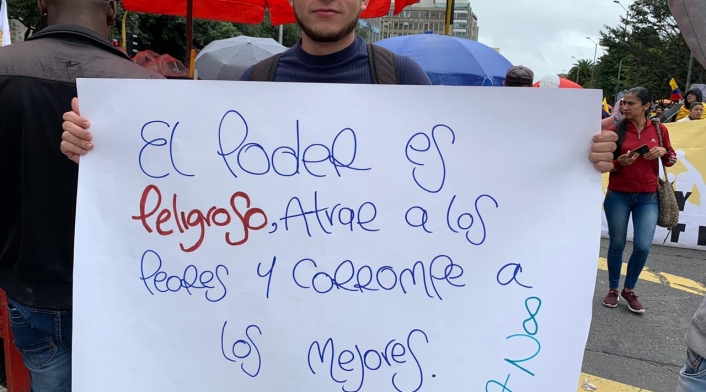 El Poder es
Peligroso, Atrae a los
Peores y Corrompe a
los Mejores.